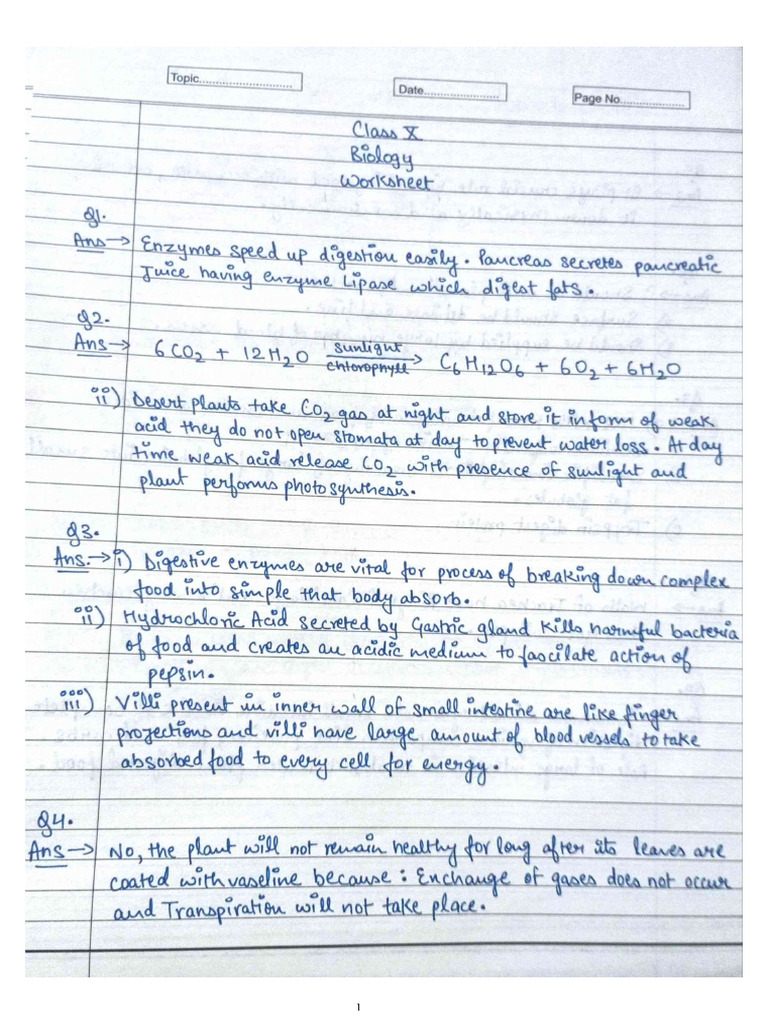 Topic............................
Date......................
Page No...................
Class X
Biology
Worksheet
Q1.
Ans → Enzymes speed up digestion easily. Pancreas secretes pancreatic
Juice having enzyme Lipase which digest fats.
Q2.
Ans → 6CO₂ + 12H₂O sunlight/chlorophyll → C₆H₁₂O₆ + 6O₂ + 6H₂O
ii) Desert plants take CO₂ gas at night and store it in form of weak
acid they do not open stomata at day to prevent water loss. At day
time weak acid release CO₂ with presence of sunlight and
plant performs photosynthesis.
Q3.
Ans. → i) Digestive enzymes are vital for process of breaking down complex
food into simple that body absorb.
ii) Hydrochloric Acid secreted by Gastric gland Kills harmful bacteria
of food and creates an acidic medium to fascilate action of
pepsin.
iii) Villi present in inner wall of small intestine are like finger
projections and villi have large amount of blood vessels to take
absorbed food to every cell for energy.
Q4.
Ans → No, the plant will not remain healthy for long after its leaves are
coated with vaseline because : Enchange of gases does not occur
and Transpiration will not take place.
1